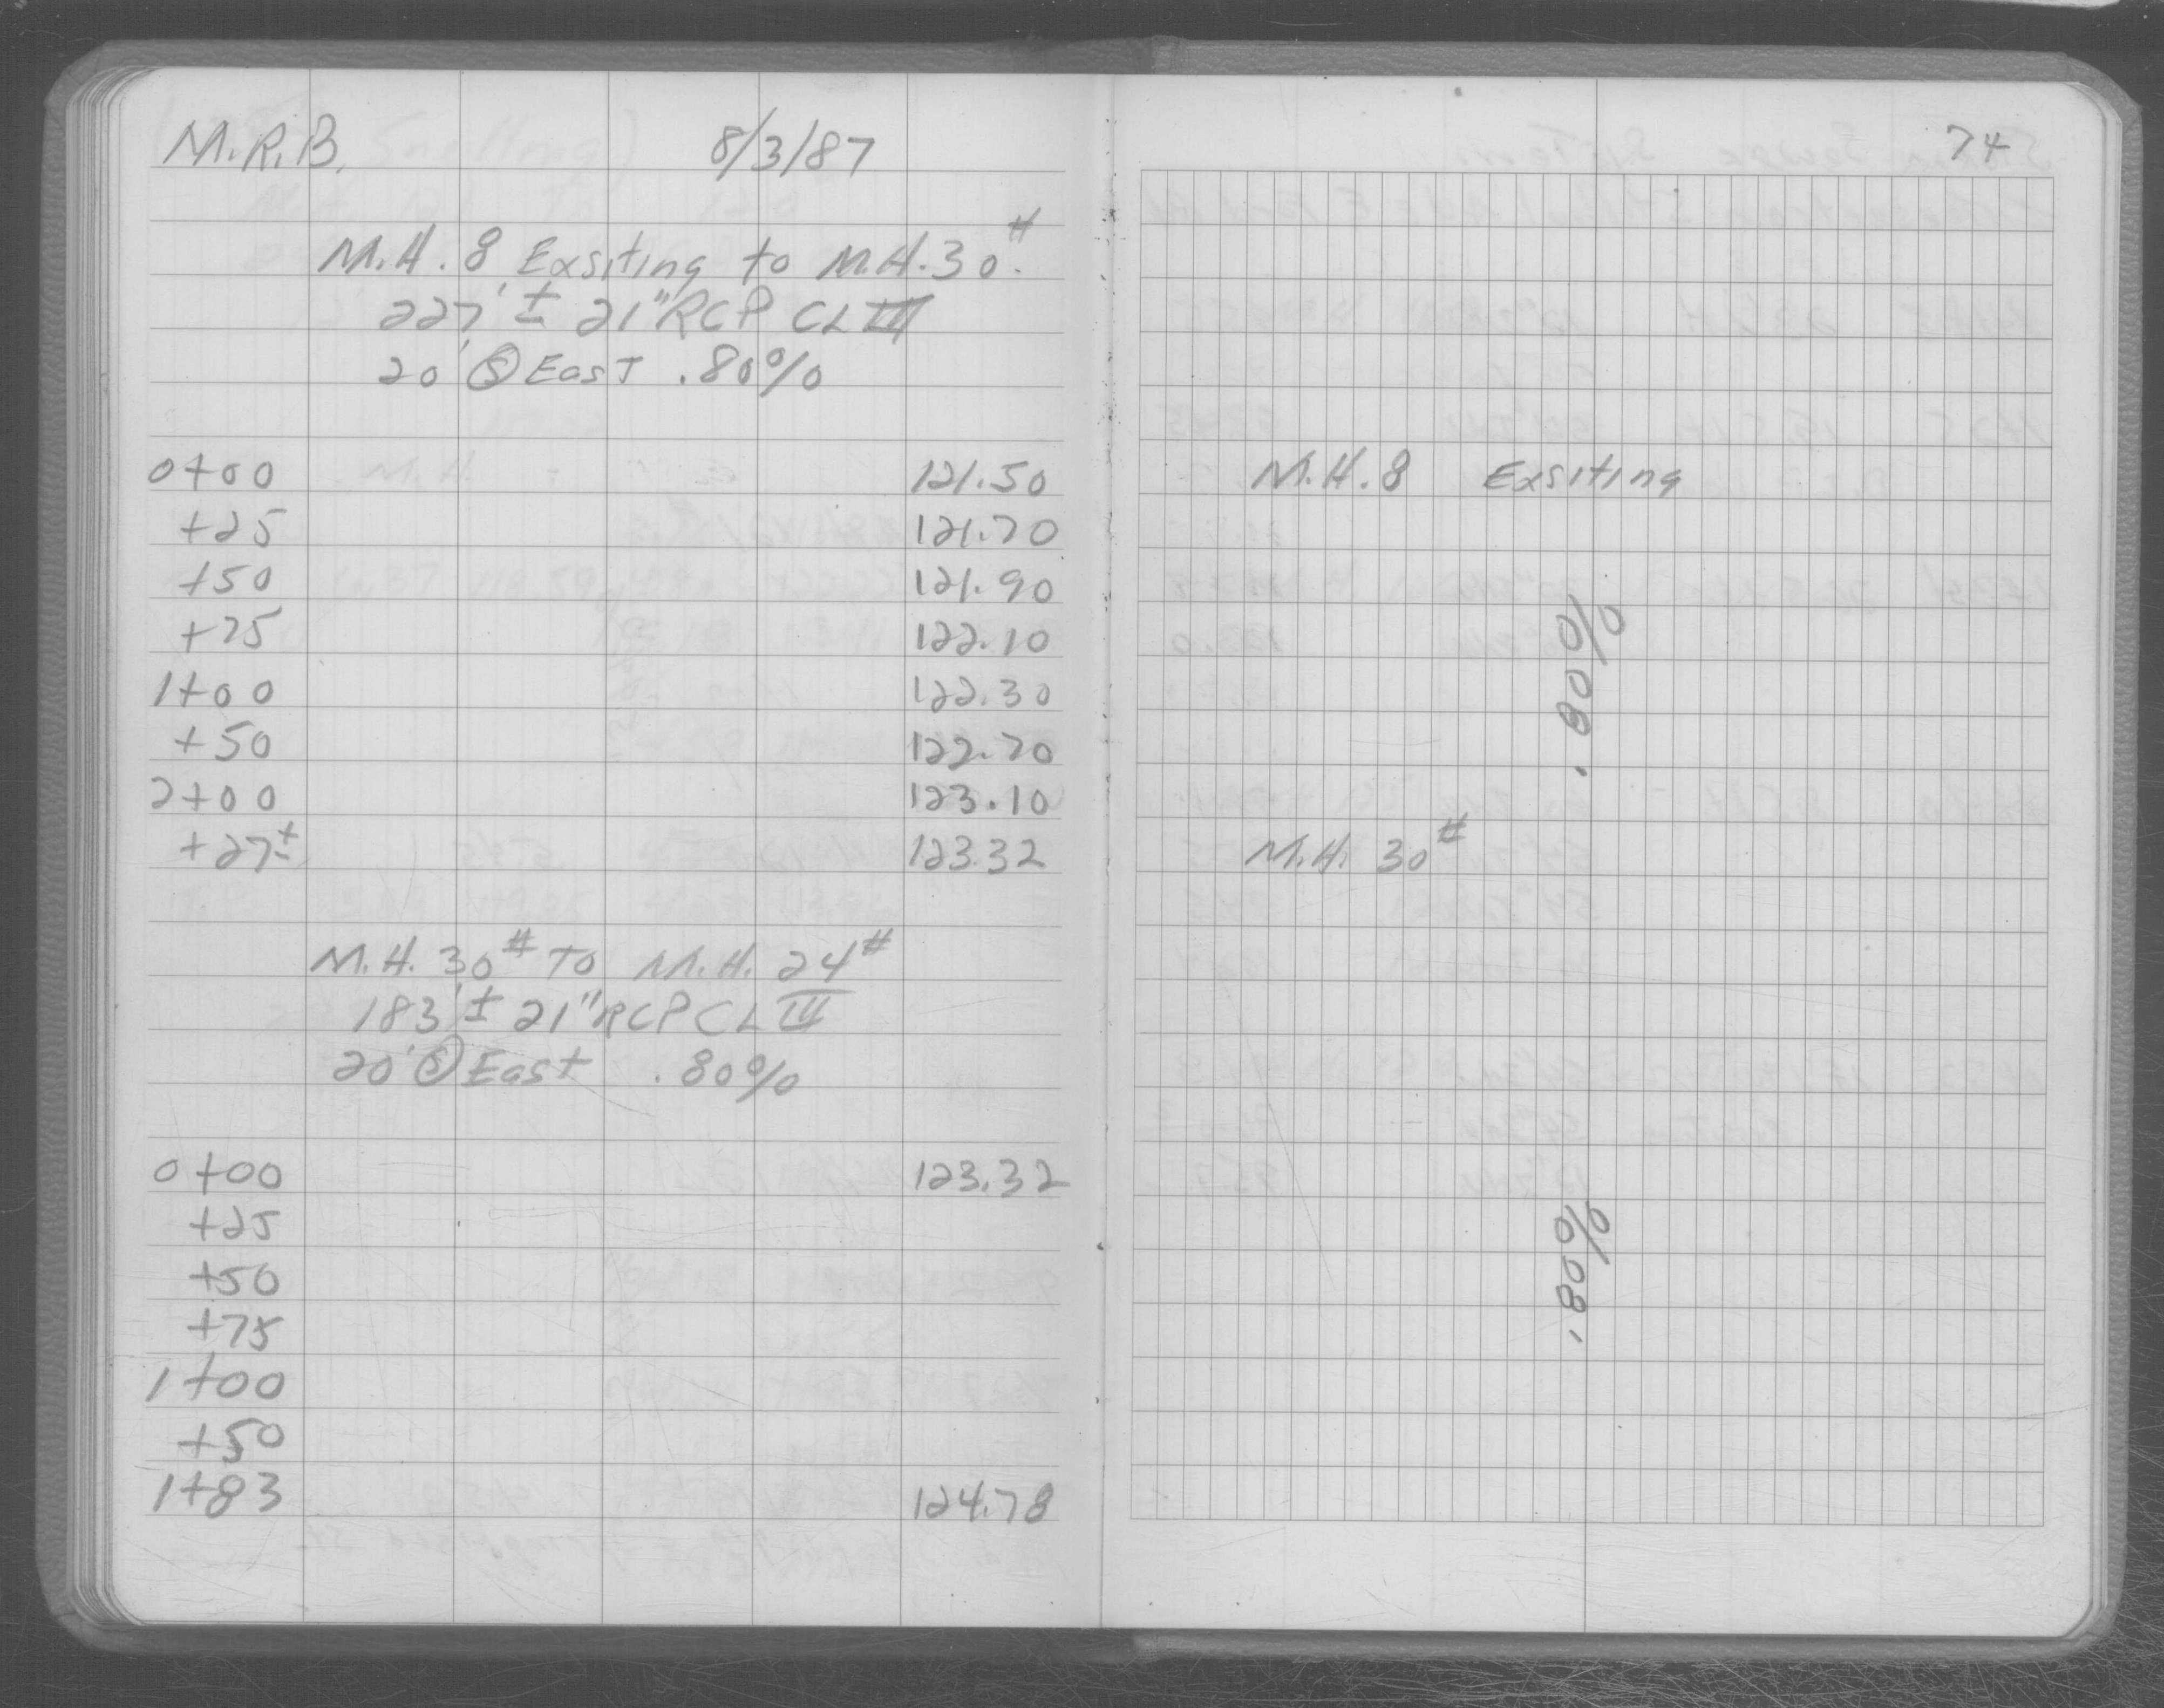 M.R.B. 8/3/87
M.H. 8 Exsiting to M.H. 30#
227'± 21" RCP CL III
20' Ⓢ East .80%
0+00 121.50
+25 121.70
+50 121.90
+75 122.10
1+00 122.30
+50 122.70
2+00 123.10
+27± 123.32
M.H. 30# To M.H. 24#
183'± 21" RCP CL III
20' Ⓢ East .80%
0+00 123.32
+25
+50
+75
1+00
+50
1+83 124.78
74
M.H. 8 Exsiting
.80%
M.H. 30#
.80%